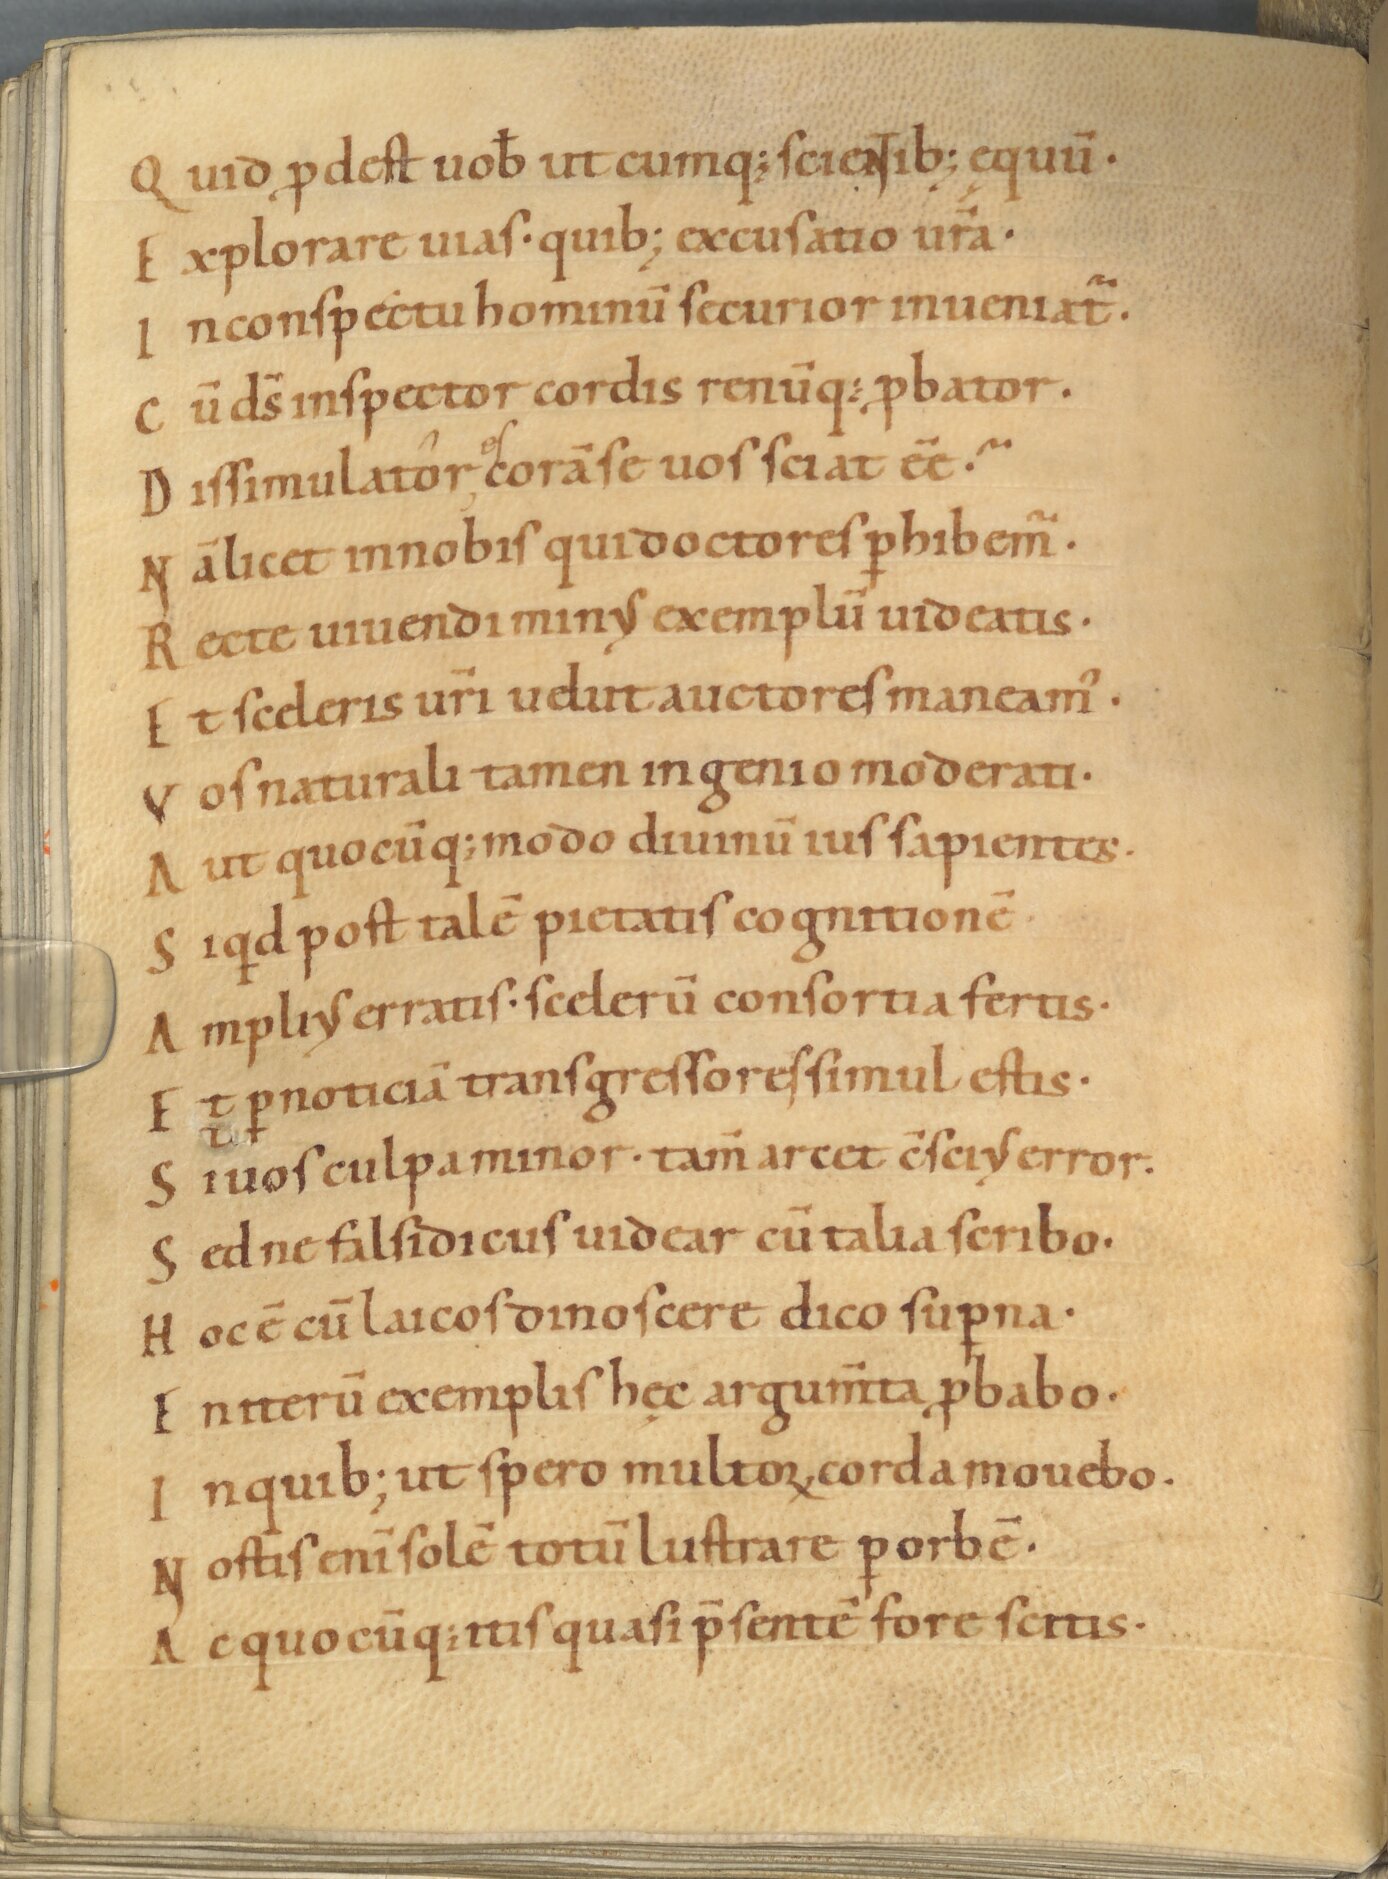 Quid ꝓdest uob̄ ut cumq; scientib; ęquū.
Explorare uias. quib; excusatio ur̄a.
Inconspectu hominū securior inueniat̃.
Cū ds̄ inspector cordis renūq; ꝓbator.
Dissimulator,es corā se uos sciat eē.
Nā licet innobis qui doctores ꝑhibem̃.
Recte uiuendi minꝰ exemplū uideatis.
Et sceleris ur̄i uelut auctores maneamꝰ.
Vos naturali tamen ingenio moderati.
Aut quocūq; modo diuinū ius sapientes.
Siqd post talē pietatis cognitionē
Ampliꝰ erratis. scelerū consortia fertis.
Et ꝑnoticiā transgressores simul estis.
Si uos culpa minor. tam̄ arcet c̄sciꝰ error.
Sed ne falsidicus uidear cū talia scribo.
Hoc ē cū laicos dinoscere dico suꝑna.
En iterū exemplis hęc argum̄ta ꝓbabo.
In quib; ut spero multoꝝ corda mouebo.
Nostis enī solē totū lustrare ꝑ orbē.
Ac quocūq; itis quasi p̄sentē fore scitis.